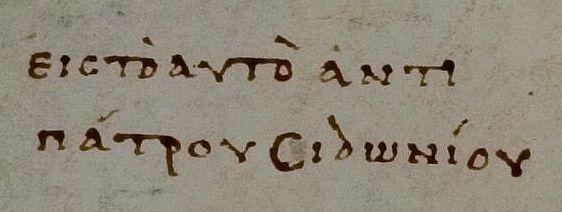 εἰς τὸ αυτὸ ἀντι
πάτρου Σιδωνίου